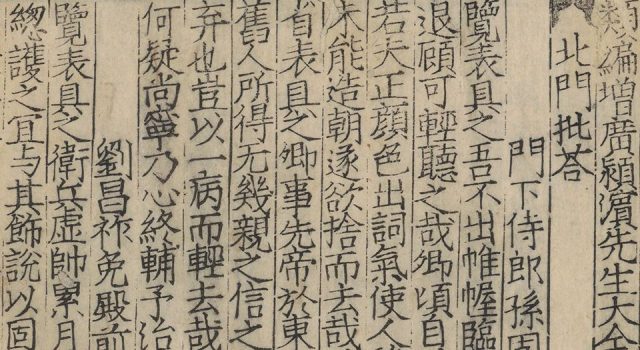 類編增廣潁濱先生大全
北門批荅
門下侍郎孫固
覽表具之吾不出帷幄臨
退顧可輕聽之哉卿頃自
若夫正顔色出詞氣使人
未能造朝遂欲捨而去哉
省表具之卿事先帝於東
舊人所得无幾親之信之
弃也豈以一病而輕去哉
何疑尚寧乃心終輔予治
劉昌祚免殿前
覽表具之衛兵虚帥累月
緫護之宜与其飾說以固